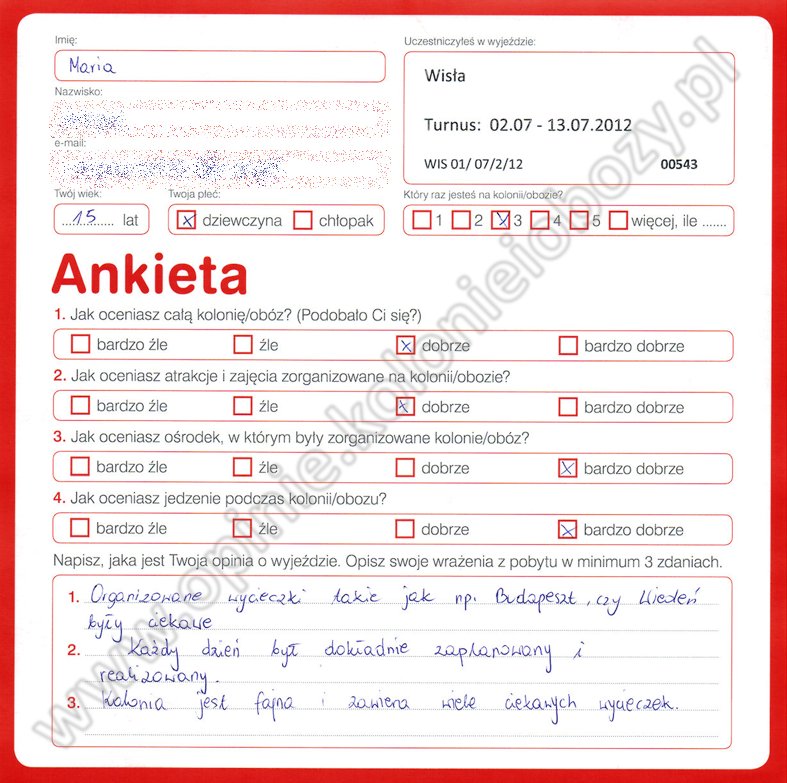 Imię:
Maria
Nazwisko:
e-mail:
Uczestniczyłeś w wyjeździe:
Wisła
Turnus: 02.07 - 13.07.2012
WIS 01/ 07/2/12 00543
Twój wiek:
15 lat
Twoja płeć:
dziewczyna chłopak
Który raz jesteś na kolonii/obozie?
1 2 3 4 5 więcej, ile .......
Ankieta
1. Jak oceniasz całą kolonię/obóz? (Podobało Ci się?)
bardzo źle źle dobrze bardzo dobrze
2. Jak oceniasz atrakcje i zajęcia zorganizowane na kolonii/obozie?
bardzo źle źle dobrze bardzo dobrze
3. Jak oceniasz ośrodek, w którym były zorganizowane kolonie/obóz?
bardzo źle źle dobrze bardzo dobrze
4. Jak oceniasz jedzenie podczas kolonii/obozu?
bardzo źle źle dobrze bardzo dobrze
Napisz, jaka jest Twoja opinia o wyjeździe. Opisz swoje wrażenia z pobytu w minimum 3 zdaniach.
1. Organizowane wycieczki takie jak np. Budapeszt, czy Wiedeń
były ciekawe
2. Każdy dzień był dokładnie zaplanowany i
realizowany.
3. Kolonia jest fajna i zawiera wiele ciekawych wycieczek.
www.opinie.kolonieiobozy.pl